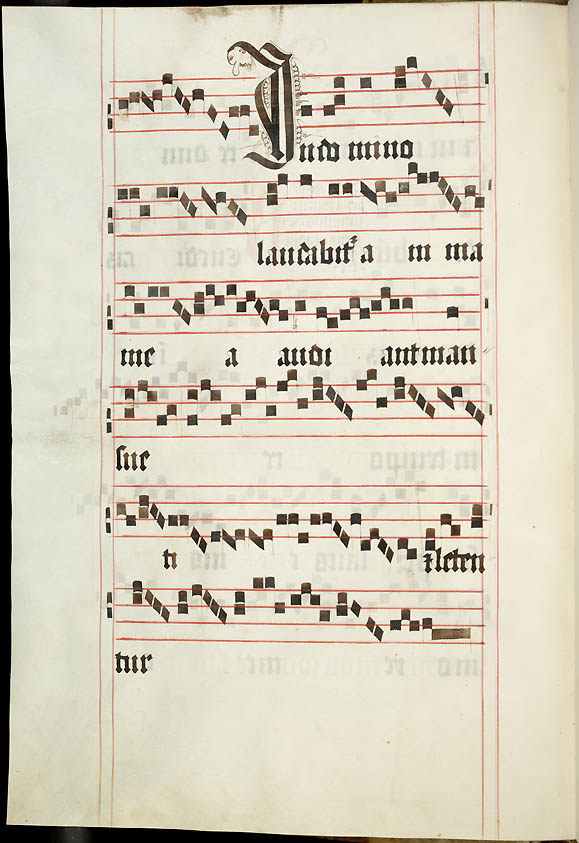 In domino
laudabitʳ a ni ma
me a audi ant man
sue
ti ⁊ leten
tur